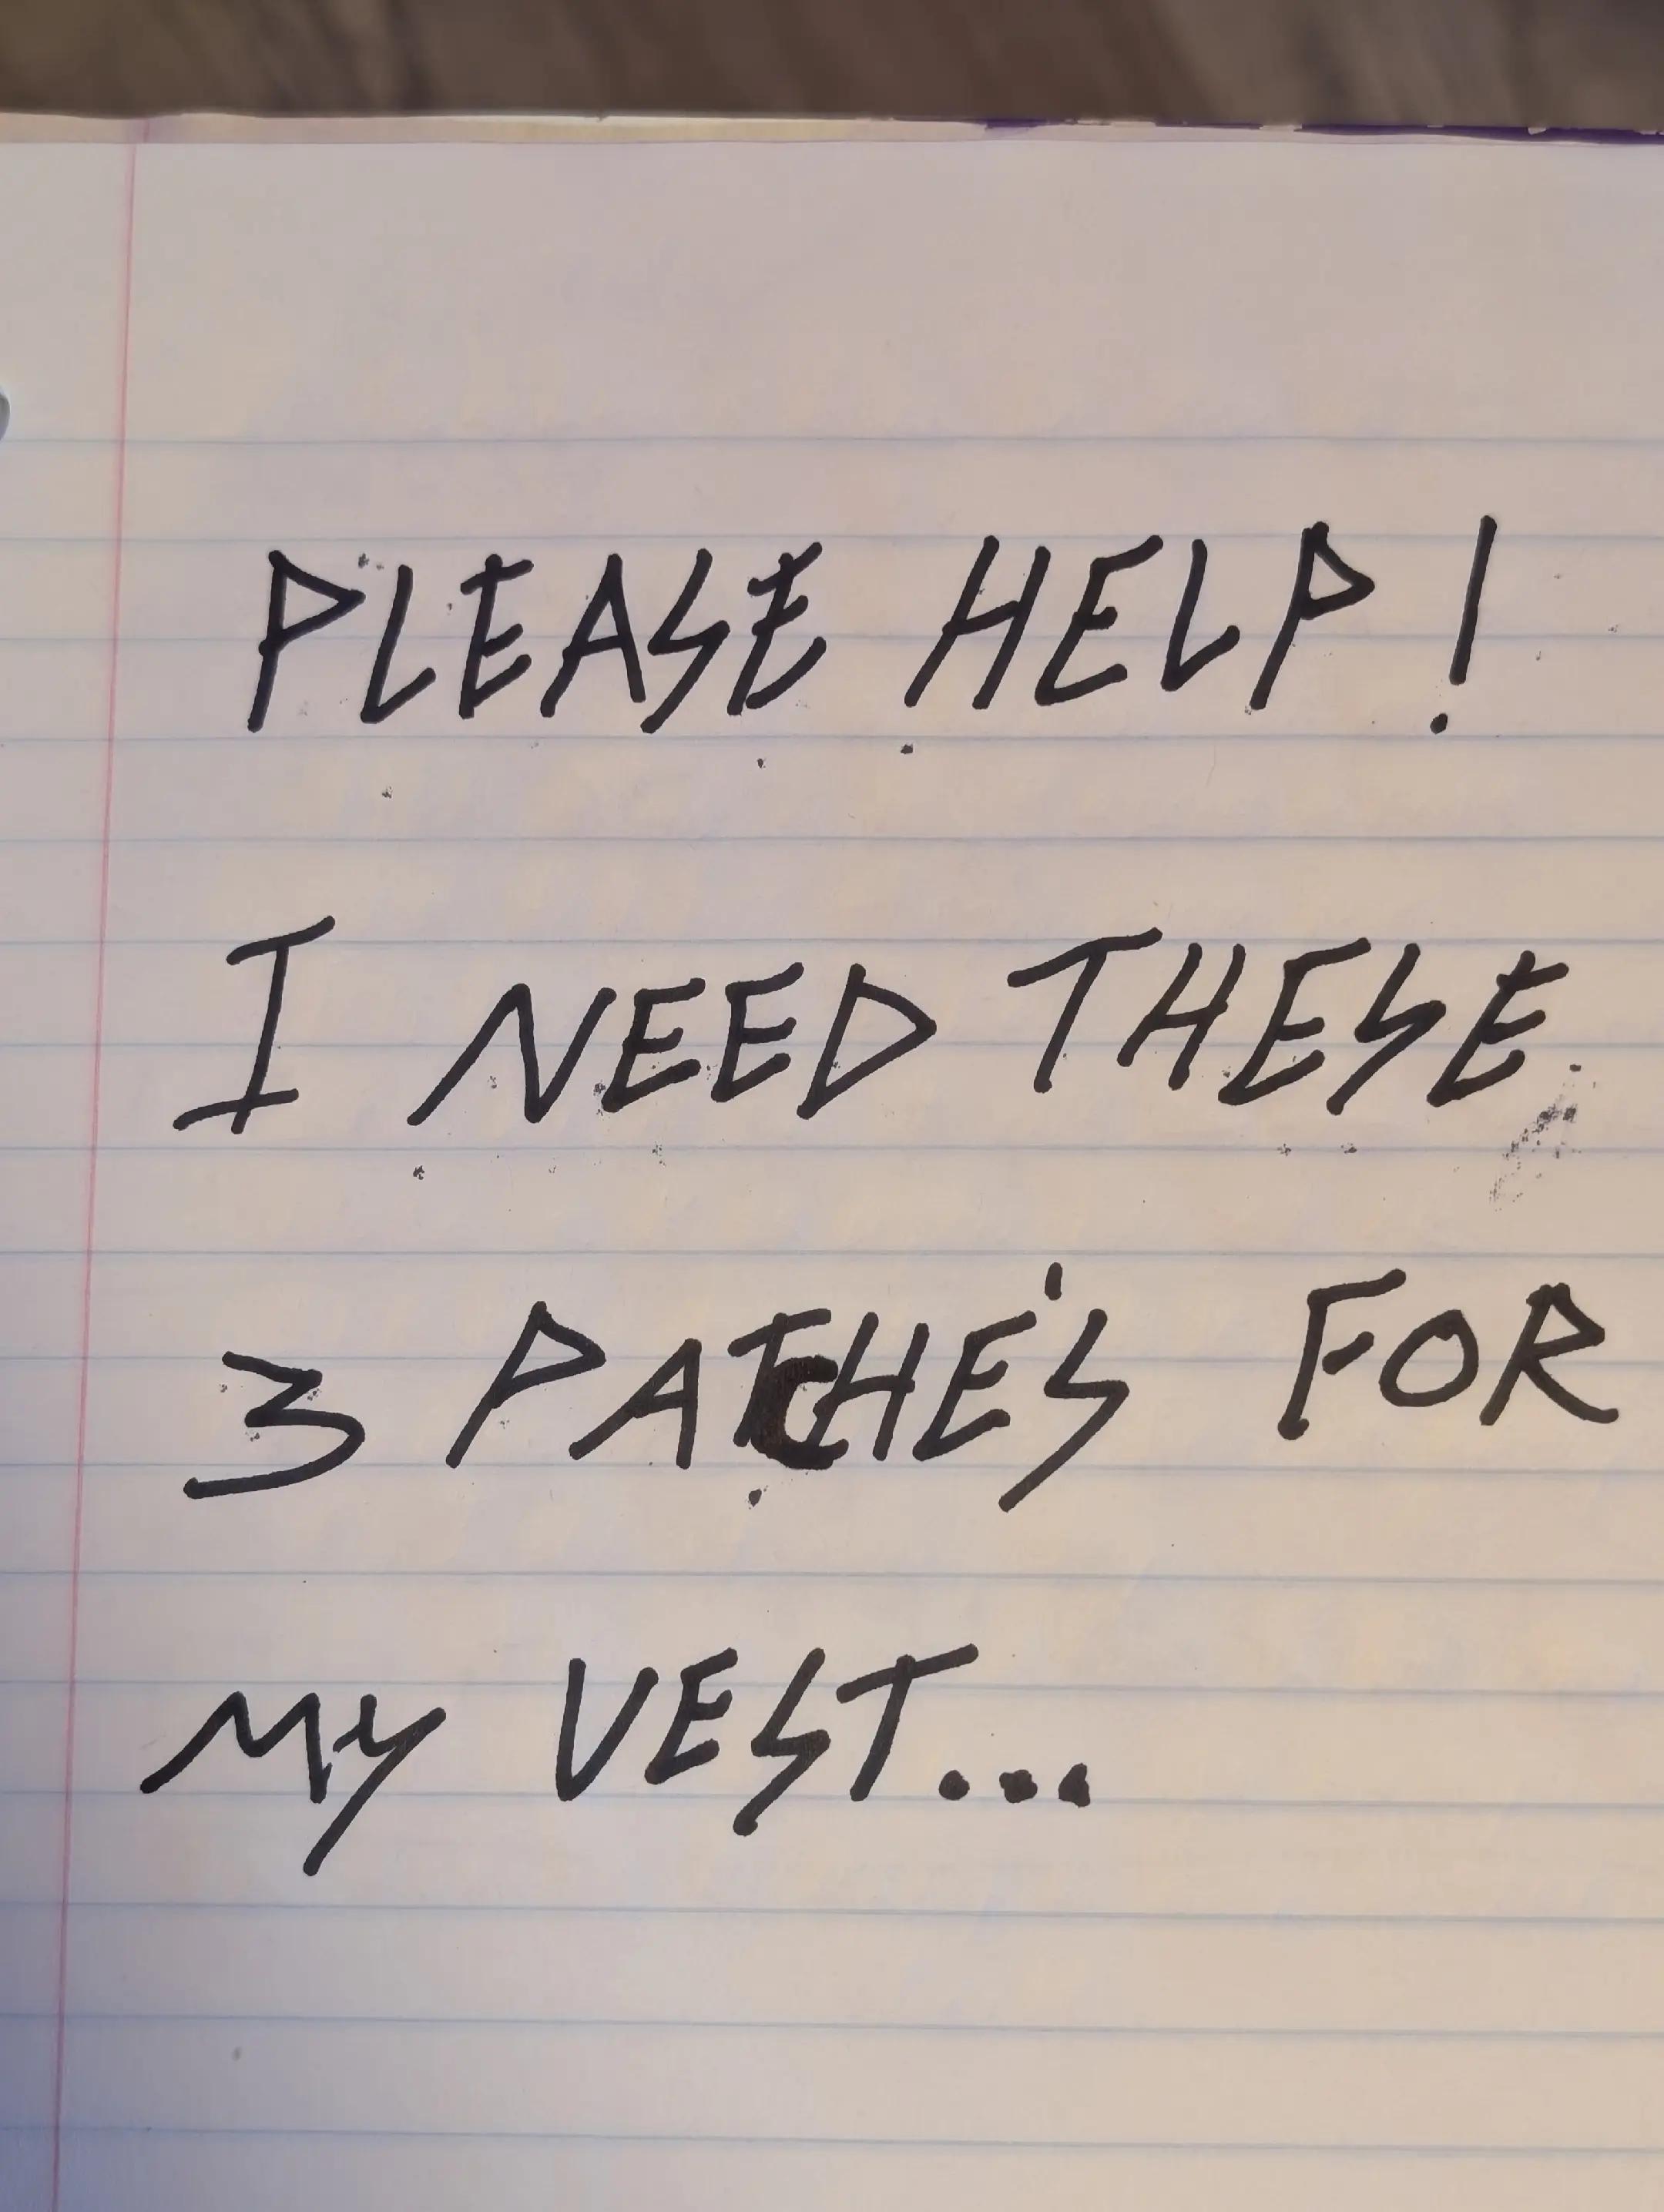 PLEASE HELP!
I NEED THESE
3 PATCHE'S FOR
MY VEST...